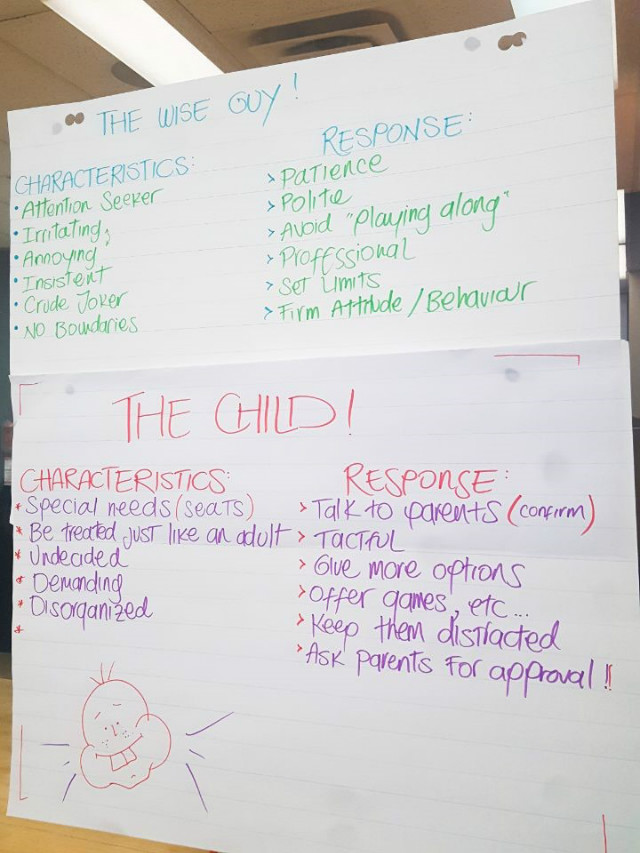 THE WISE GUY!
CHARACTERISTICS:
• Attention Seeker
• Irritating,
• Annoying
• Insistent
• Crude Joker
• NO Boundaries
RESPONSE:
> Patience
> Polite
> Avoid "playing along"
> Professional
> Set Limits
> Firm Attitude / Behaviour
THE CHILD!
CHARACTERISTICS:
* Special needs (seats)
* Be treated just like an adult
* Undecided
* Demanding
* Disorganized
*
RESPONSE:
> Talk to parents (confirm)
> TACTFUL
> Give more options
> Offer games, etc...
> Keep them distracted
> Ask parents for approval!!